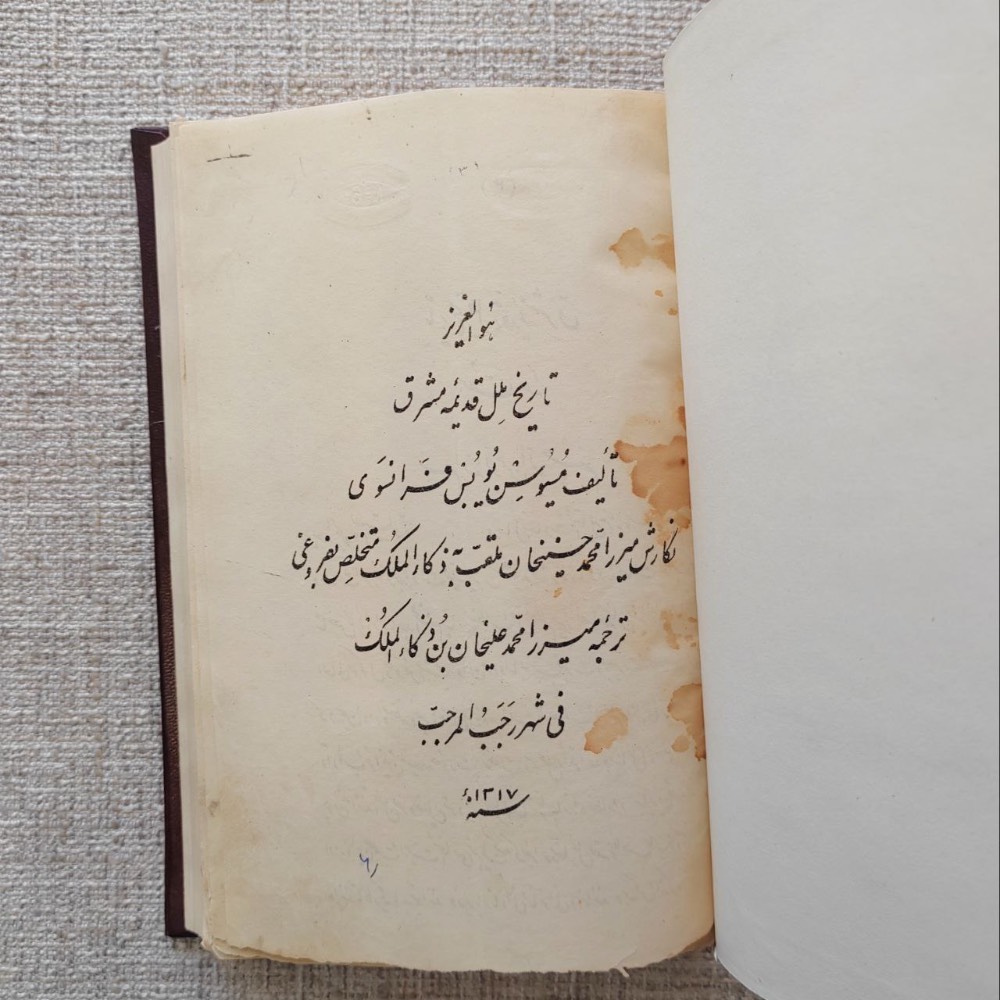 هو العزیز
تاریخ ملل قدیمه مشرق
تألیف مسیو سِن یُوبُس فرانسوی
نگارش میرزا محمد حسینخان ملقب به ذکاء الملک متخلص بفروغی
ترجمه میرزا محمد علیخان بن ذکاء الملک
فی شهر رجب المرجب
سنه ۱۳۱۷